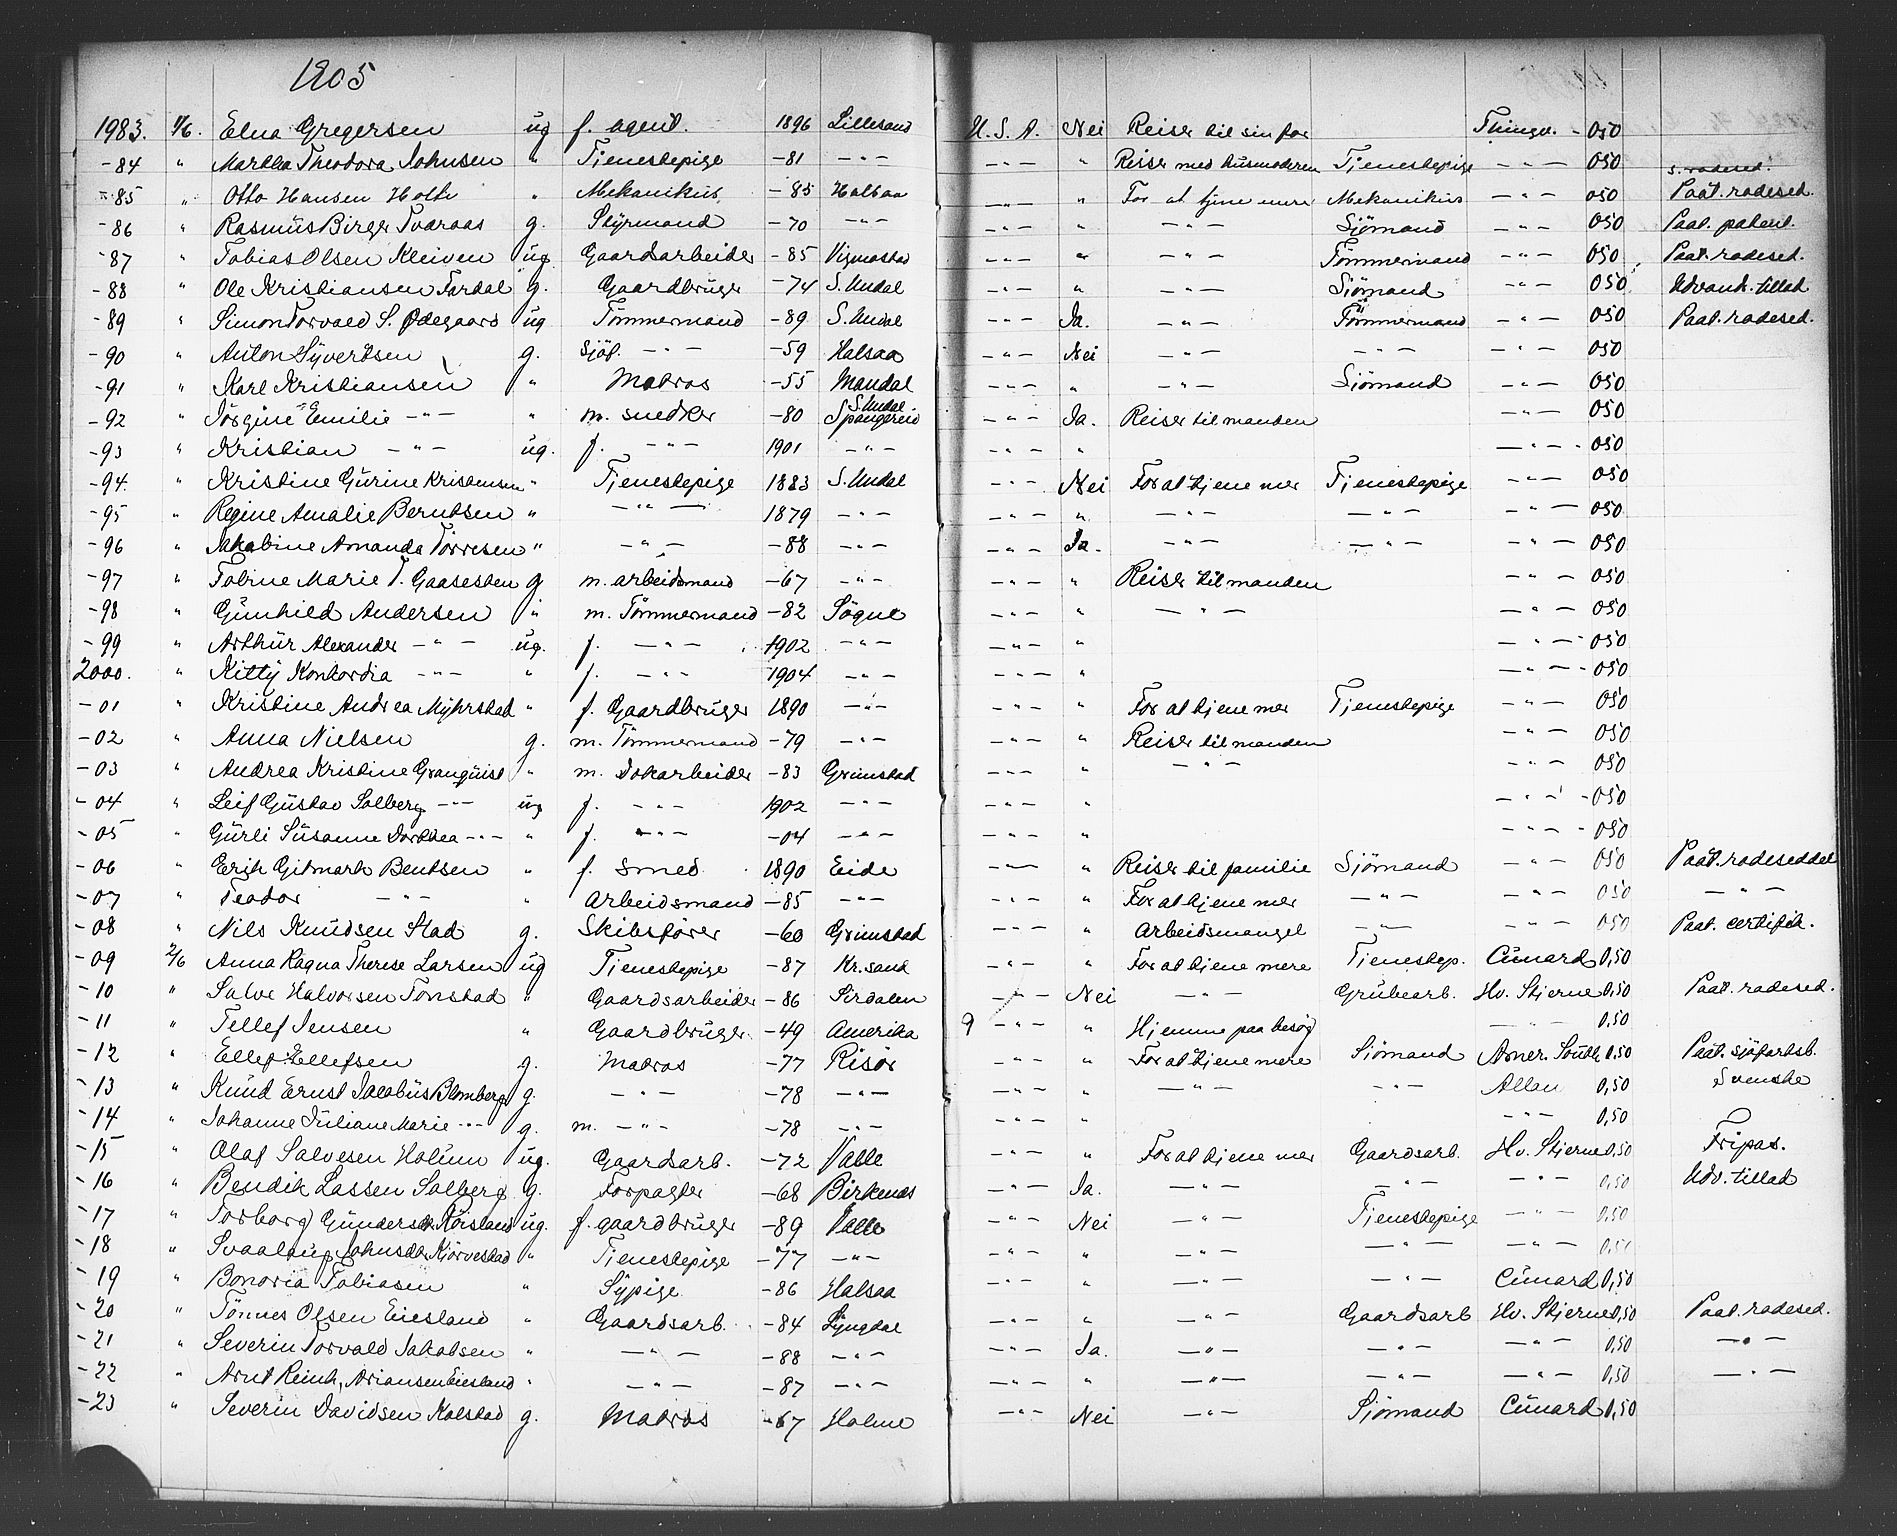 1905
1983. 1/6. Elna Gregersen ug f. agent. 1896 Lillesand U. S. A. Nei Reiser til sin far Thingv. - 050
-84 " Martha Theodora Johnsen " Tjenestepige -81 -"- -"- " Reiser med husmoderen Tjenestepige -"- 050 s. rodesed.
-85 " Otto Hansen Holte " Mekanikus -85 Halsaa -"- " For at tjene mere Mekanikus -"- 050 Paat. rodesed.
-86 " Rasmus Birger Tvaraas g. Styrmand -70 -"- -"- " -"- Sjömand -"- 050 Paat. patent.
-87 " Tobias Olsen Kleiven ug. Gaardsarbeider -85 Vigmostad -"- " -"- Tömmermand -"- 050 Paat. rodesed.
-88 " Ole Kristiansen Fardal g. Gaardbruger -74 S. Undal -"- " -"- Sjömand -"- 050 Udvandr. tillad
-89 " Simon Torvald S. Ødegaard ug Tömmermand -89 S. Undal -"- Ja. -"- Tömmermand -"- 050 Paat. rodesed.
-90 " Anton Syvertsen g. Sjöf. -"- -59 Halsaa -"- Nei -"- -"- -"- 050
-91 " Karl Kristiansen " Matros -55 Mandal -"- " -"- Sjömand -"- 050
-92 " Jörgine Emilie -"- " m. snedker -80 S. Undal Spangereid -"- Ja. Reiser til manden -"- 050
-93 " Kristian -"- ug. f. -"- 1901 -"- -"- " -"- 050
-94 " Kristine Gurine Kristensen " Tjenestepige 1883 S. Undal -"- Nei For at tjene mer Tjenestepige -"- 050
-95 " Regine Amalie Berntsen " -"- 1879 -"- -"- " -"- -"- -"- 050
-96 " Jakobine Amanda Torresen " -"- -88 -"- -"- Ja. -"- -"- -"- 050
-97 " Tobine Marie T. Gaasesten g m. arbeidsmand -67 -"- -"- " Reiser til manden -"- 050
-98 " Gunhild Andersen " m. Tömmermand -82 Sögne -"- " -"- -"- 050
-99 " Arthur Alexander -"- ug. f. -"- 1902 -"- -"- " -"- 050
2000. " Kitty Konkordia -"- " f. -"- 1904 -"- -"- " -"- 050
-01 " Kristine Andrea Myhrstad " f. Gaardbruger 1890 -"- -"- " For at tjene mer Tjenestepige -"- 050
-02 " Anna Nielsen g. m. Tömmermand -79 -"- -"- " Reiser til manden -"- 050
-03 " Andrea Kristine Granquist " m. Dokarbeider -83 Grimstad -"- " -"- -"- 050
-04 " Leif Gustav Solberg -"- ug f. -"- 1902 -"- -"- " -"- 050
-05 " Gurli Susanne Dorthea -"- " f. -"- -04 -"- -"- " -"- 050
-06 " Erik Gitmark Bentsen " f. smed 1890 Eide -"- " Reiser til familie Sjömand -"- 050 Paat. rodeseddel
-07 " Teodor -"- " Arbeidsmand -85 -"- -"- " For at tjene mer -"- -"- 050 -"-
-08 " Nils Knudsen Stad g. Skibsfører -60 Grimstad -"- " Arbeidsmangel -"- -"- 050 Paat. certifik.
-09 2/6 Anna Ragna Therese Larsen ug Tjenestepige -87 Kr.sand -"- " For at tjene mere Tjenestep. Cunard 0,50
-10 " Salve Halvorsen Tonstad " Gaardsarbeider -86 Sirdalen -"- Nei -"- Grubearb. Hv. Stjerne 0,50 Paat. rodesed.
-11 " Tellef Jensen " Gaardbruger -49 Amerika 9 -"- " Hjemme paa besøg -"- 0,50
-12 " Ellef Ellefsen g. Matros -77 Risör -"- " For at tjene mere Sjömand Amer. South. 0,50 Paat. sjöfartsb.
-13 " Knud Ernst Jacobus Blomberg g. -"- -78 -"- -"- " -"- -"- Allan 0,50 Svenske
-14 " Johanne Juliane Marie -"- g. m. -"- -78 -"- -"- " -"- 0,50
-15 " Olaf Salvesen Holum ug. Gaardsarb. -72 Valle -"- " For at tjene mer Gaardsarb. Hv. Stjerne 0,50 Fripas.
-16 " Bendik Lassen Solberg g. Forpagter -68 Birkenæs -"- Ja. -"- -"- -"- 0,50 Udv. tillad
-17 " Torborg Gundersdtr. ug. f. gaardbruger -89 Valle -"- Nei -"- Tjenestepige -"- 0,50
-18 " Svaalaug Johnsdtr. " Tjenestepige -77 -"- -"- " -"- -"- -"- 0,50
-19 " Bonoria Tobiasen " Sypige -86 Halsaa -"- " -"- -"- Cunard 0,50
-20 " Tönnes Olsen Eiesland " Gaardsarb. -84 Lyngdal -"- " -"- Gaardsarb Hv. Stjerne 0,50 Paat. rodesed.
-21 " Severin Torvald Jakobsen " -"- -88 -"- -"- Ja. -"- -"- -"- 0,50 -"-
-22 " Arnt Reinh. Ariansen Eiesland " -"- -87 -"- -"- " -"- -"- -"- 0,50 -"-
-23 " Severin Davidsen Kolstad g. Matros -67 Holme -"- Nei -"- Sjömand Cunard 0,50